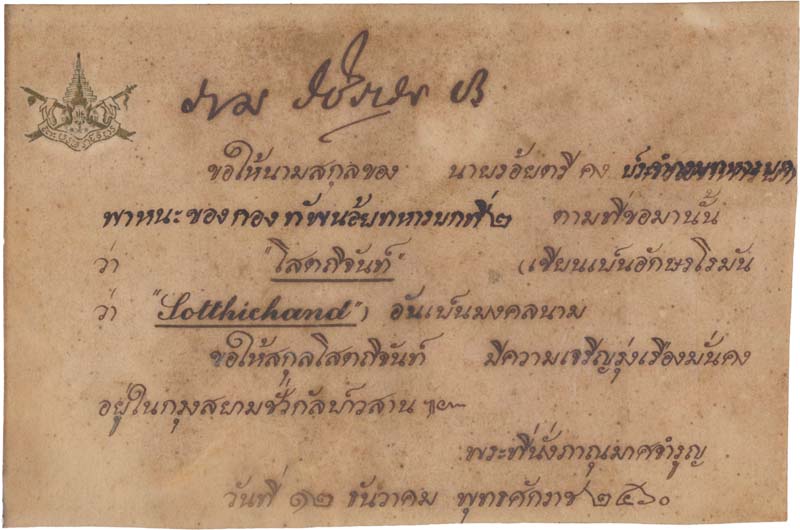 ราม วชิราวุธ ปร
ขอให้นามสกุลของ นายร้อยตรี คง ประจำกรมทหารบก
พาหนะของกองทัพน้อยทหารบกที่๒ ตามที่ขอมานั้น
ว่า "โสตถิจันท์" (เขียนเป็นอักษรโรมัน
ว่า "Sotthichand") อันเป็นมงคลนาม
ขอให้สกุลโสตถิจันท์ มีความเจริญรุ่งเรืองมั่นคง
อยู่ในกรุงสยามชั่วกัลปาวสาน ๚ะ๛
พระที่นั่งภาณุมาศจำรูญ
วันที่ ๑๒ ธันวาคม พุทธศักราช ๒๔๖๐